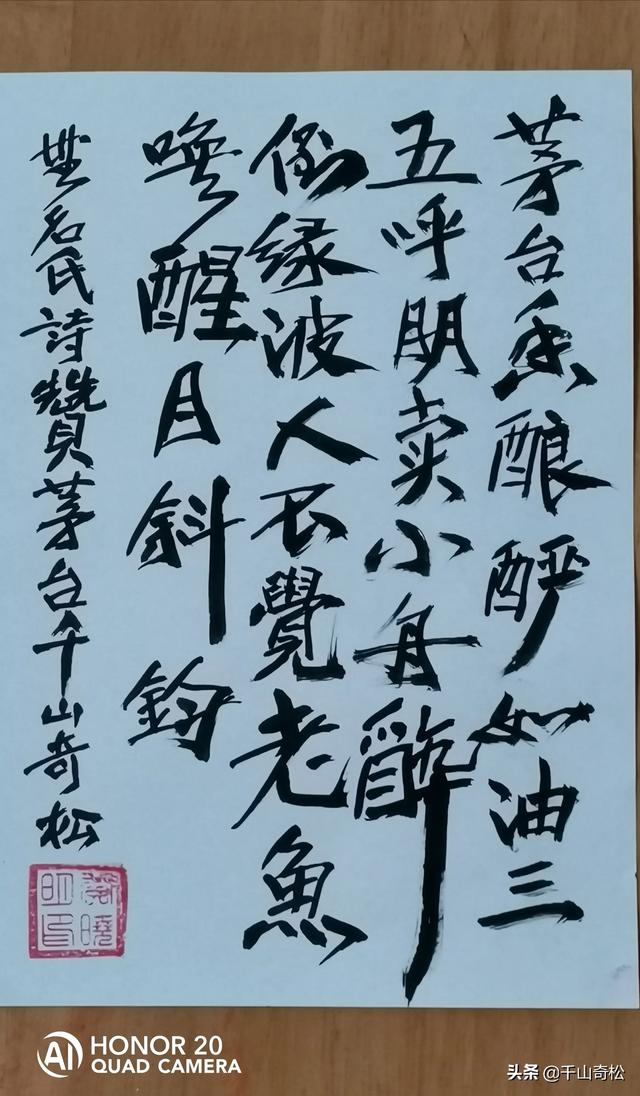 茅台香酿酽如油三
五呼朋卖小舟醉
倒緑波人不覺老魚
唤醒月斜鈎
無名氏詩贊茅台千山奇松
曉明印
HONOR 20
QUAD CAMERA
头条 @千山奇松